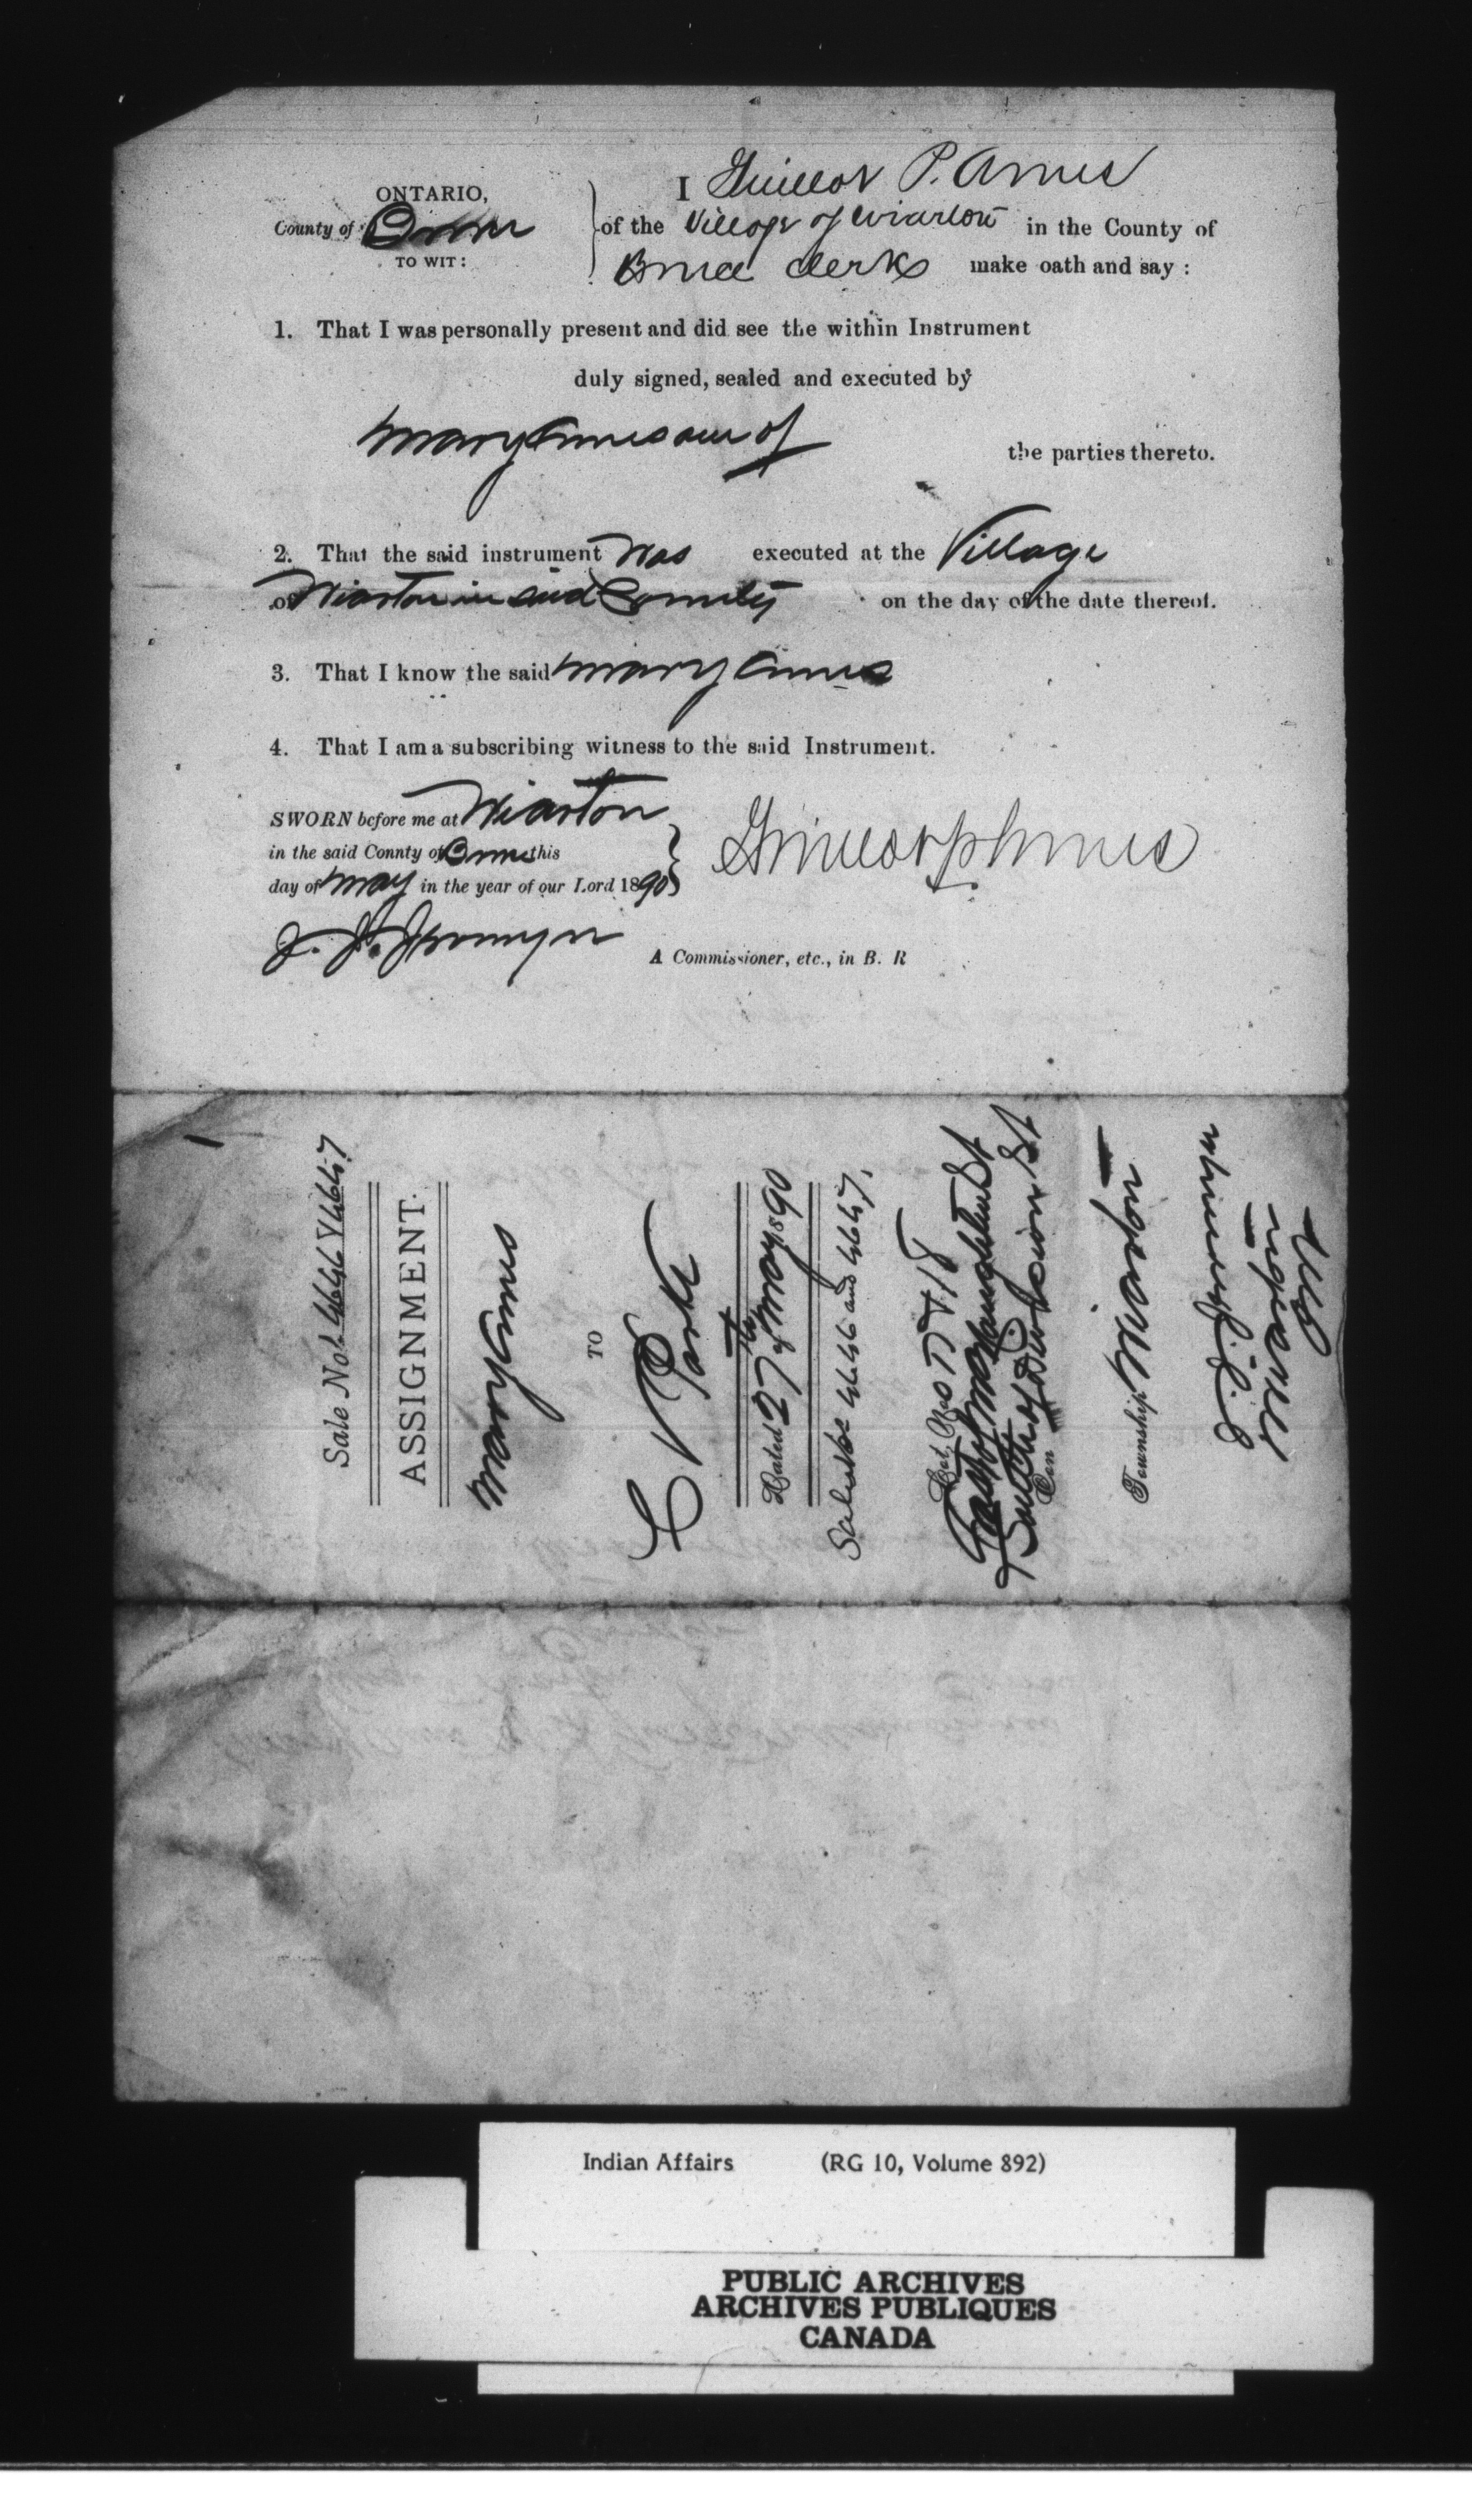 ONTARIO,
County of Bruce
TO WIT:
I P. Ames
of the Village of Wiarton in the County of
Bruce Clerk make oath and say:
1. That I was personally present and did see the within Instrument
duly signed, sealed and executed by
Mary Ames one of
the parties thereto.
2. That the said instrument was executed at the Village
of Wiarton in said County on the day of the date thereof.
3. That I know the said Mary Ames
4. That I am a subscribing witness to the said Instrument.
SWORN before me at Wiarton
in the said Connty of Bruce this
day of May in the year of our Lord 1890
A Commissioner, etc., in B. R
Sale No
ASSIGNMENT.
Mary Ames
TO
Park
Dated 27th of May 1890
Sales and
Lot Nos 17 & 18
East of St
& South of Division St
Con
Township Wiarton
Indian Affairs (RG 10, Volume 892)
PUBLIC ARCHIVES
ARCHIVES PUBLIQUES
CANADA